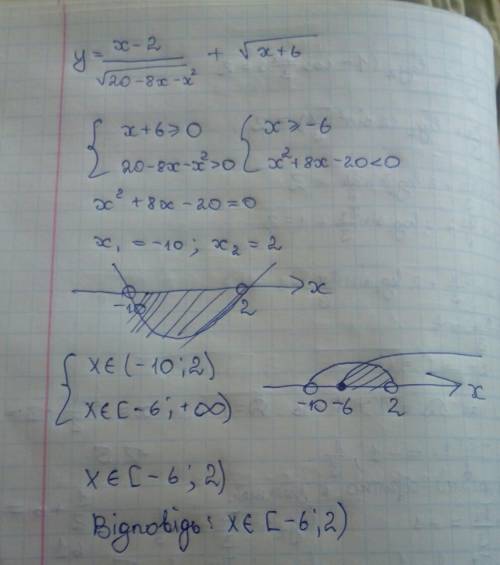 y = x-2 / √20-8x-x² + √x+6
{ x+6≥0 { x≥-6
20-8x-x²>0 x²+8x-20<0
x²+8x-20=0
x₁ = -10 ; x₂ = 2
-10 2 x
{ x∈(-10;2)
x∈[-6;+∞)
-10 -6 2 x
x∈[-6;2)
Відповідь: x∈[-6;2)